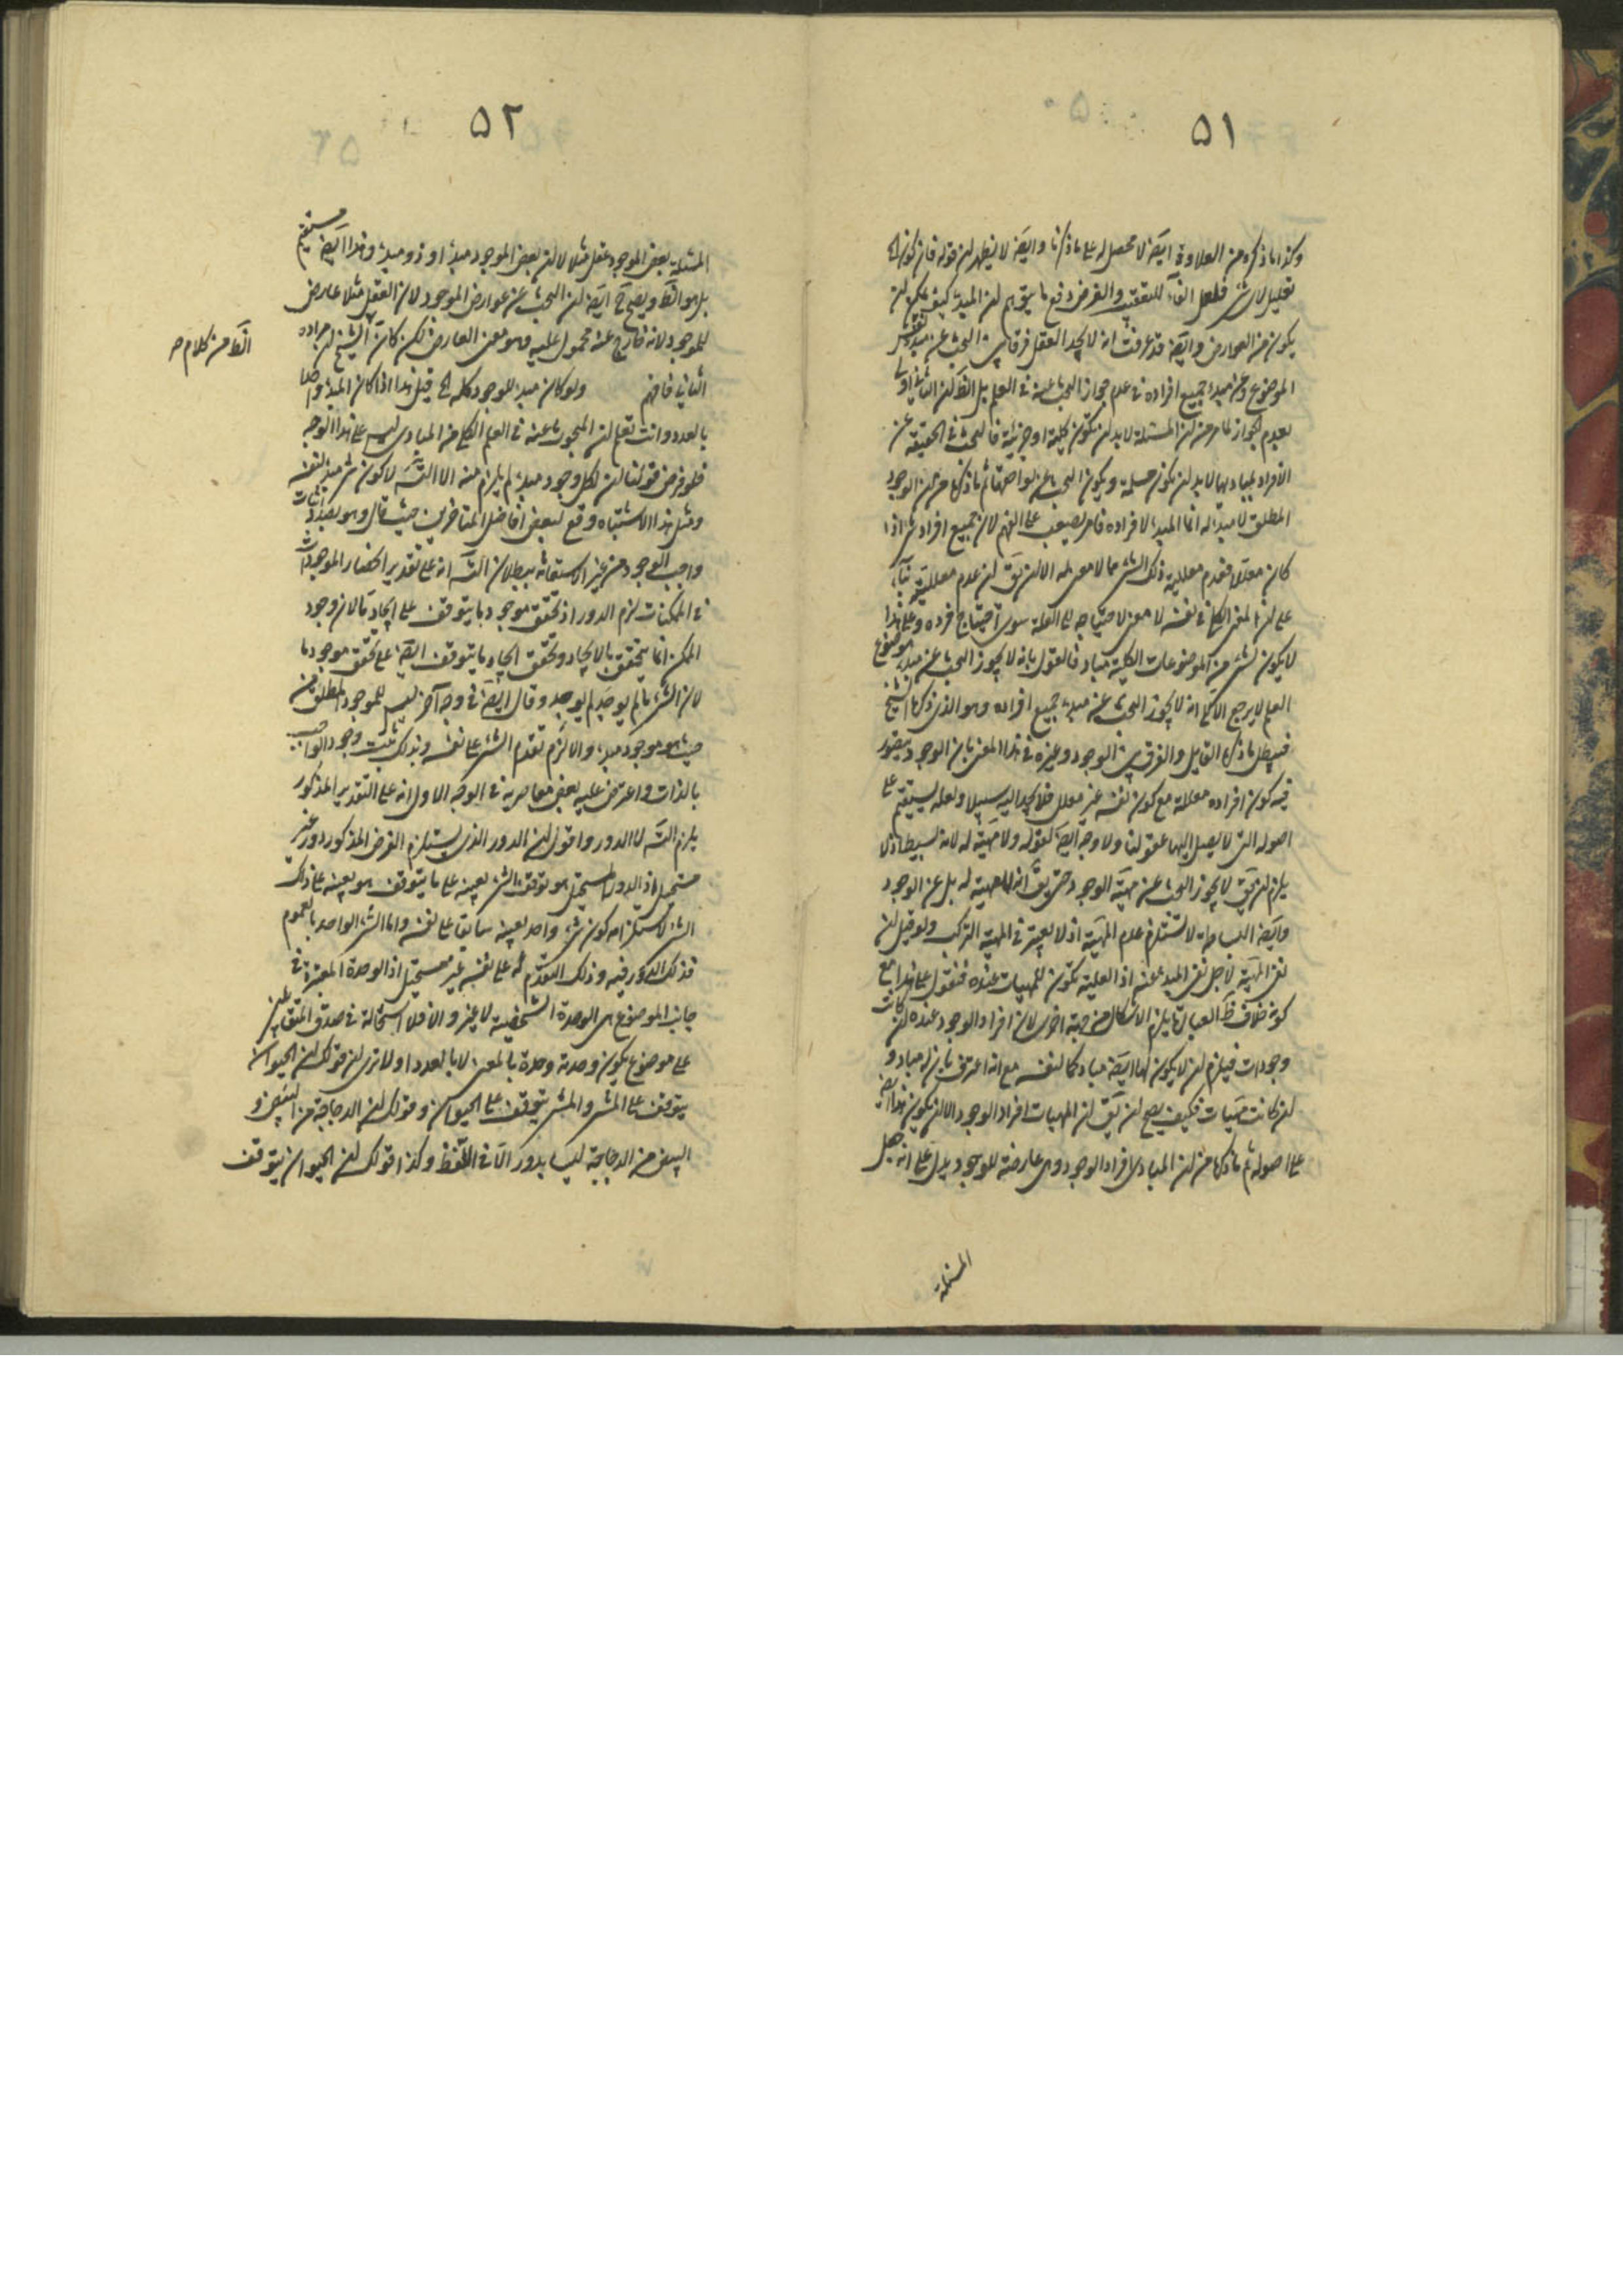 ٥١
وكذا ما ذكره من العلاوة ايضَ لا محصل له على ما ذكرنا وايضَ لا يظهر لن قوله فان كون الخ
تعليل لاى شئ فلعل الفاء للتعقيب والغرض دفع ما يتوهم لن المبدء كيف يمكن لن
يكون من العوارض وايضَ قد عرفت انه لا يجد العقل فرقا بين البحث عن مبدء نفس
الموضوع وعن مبدء جميع افراده فى عدم جواز البحث عنه فى العلم بل الظَ لن الثانى اولى
بعدم الجواز لما مر من لن المسئلة لابد لن تكون كلية او جزئية فالبحث فى الحقيقة عن
الافراد فمباديها لابد لن تكون مسلمة ويكون البحث عن لواحقها ثم ما ذكره من لن الوجود
المطلق لا مبدء له انما المبدء لافراده فامر يصعب على الفهم لان جميع افراد شئ اذا
كان معللا فعدم معللية ذلك الشئ مما لا معنى له الا لن يقَ لن عدم معلليته بناء
على لن المعنى الكلى فى نفسه لا معنى لاحتياجه الى العلة سوى احتياج فرده وعلى هذا
لا يكون لشئ من الموضوعات الكلية مباد فالقول بانه لا يجوز البحث عن مبدء موضوع
العلم لا يرجع الا الى انه لا يجوز البحث عن مبدء جميع افراده وهو الذى ذكره الشيخ
فيبطل ما ذكره القايل والفرق بين الوجود وغيره فى هذا المعنى بان الوجود يتصور
فيه كون افراده معللة مع كون نفسه غير معلل فلا يجد اليه سبيلا ولعله يستقيم على
اصوله التى لا يصل اليها عقولنا ولا وجه ايضَ لقوله ولا مهيّة له لانه بسيط اذ لا
يلزم لن يقَ لا يجوز البحث عن مهيّة الوجود حتى يقَ انه لا مهية له بل عن الوجود
وايضَ البساطة لا تستلزم عدم المهيّة اذ لا يعتبر فى المهيّة التركب ولو قيل لن
نفى المهيّة لاجل نفى المبدء عنه اذ العلية تكون للمهيات عنده فنقول على هذا مع
كونه خلاف ظَ العبارة يلزم الاشكال من جهة اخرى لان افراد الوجود عنده لن كانت
وجودات فيلزم لن لا يكون لها ايضَ مباد كما لنفسه مع انه اعترف بان له مباد و
لن كانت مهيّات فكيف يصح لن يقَ لن المهيات افراد الوجود الا لن يكون هذا ايضَ
على اصوله ثم ما ذكره من لن المبادى لافراد الوجود وهى عارضة للوجود يدل على انه جعل
المسئلة
٥٢
المسئلة بعض الموجود عقل مثلا لا لن بعض الموجود مبدء او ذو مبدء وهذا ايضَ مستقيم
بل هو الظَ ويصح حَ ايضَ لن البحث عن عوارض الموجود لان العقل مثلا عارض
للموجود لانه خارج عنه محمول عليه وهو معنى العارض لكن كان الشيخ لن مراده
الظَ من كلام
الثانى فافهم ولو كان مبدء للوجود كله الخ قيل هذا اذا كان المبدء واحدا
بالعدد وانت تعلم لن المبحوث عنه فى العلم الكلى من المبادى ليس على هذا الوجه
فلو فرض قولنا لن لكل وجود مبدء لم يلزم منه الا التسَ لا كون شئ مبدء لنفسه
ومثل هذا الاشتباه وقع لبعض افاضل المتاخرين حيث قال وهو بصدد اثبات
واجب الوجود من غير الاستعانة ببطلان التسَ انه على تقدير انحصار الموجودات
فى الممكنات لزم الدور اذ تحقق موجود ما يتوقف على ايجاد ما لان وجود
الممكن انما يتحقق بالايجاد وتحقق ايجاد ما يتوقف ايضَ على تحقق موجود ما
لان الشئ ما لم يوجد لم يوجد وقال ايضَ فى وجه آخر ليس للموجود المطلق من
حيث هو موجود مبدء والا لزم تقدم الشئ على نفسه وبذلك يثبت وجود الواجب
بالذات واعترض عليه بعض معاصريه فى الوجه الاول انه على التقدير المذكور
يلزم التسَ لا الدور واقول لن الدور الذى يستلزم الفرض المذكور دور غير
مستحيل اذ الدور المستحيل هو توقف الشئ بعينه على ما يتوقف هو بعينه على ذلك
الشئ لاستلزامه كون شئ واحد بعينه سابقا على نفسه واما الشئ الواحد بالعموم
فذلك الدور فيه وذلك التقدم له على نفسه غير مستحيل اذ الوحدة المعتبرة فى
جانب الموضوع هى الوحدة الشخصية لا غير والا فلا استحالة فى صدق المتقابلين
على موضوع يكون وحدته وحدة بالمعنى لا بالعدد اولا ترى لن قولك لن الحيوان
يتوقف على المشى والمشى يتوقف على الحيوان وقولك لن الدجاجة من البيض و
البيض من الدجاجة ليسا بدور الا فى اللفظ وكذا قولك لن الحيوان يتوقف